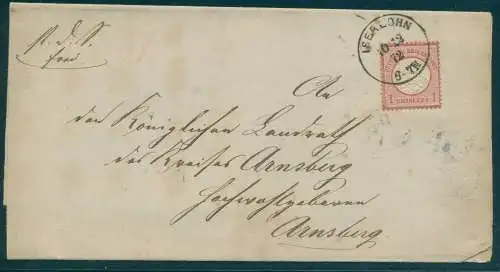 ISERLOHN
10 12
72
6-7N
p. d. S.
frei
1 GROSCHEN 1
An
den Königlichen Landrath
des Kreises Arnsberg
Hochwohlgeboren
Arnsberg.